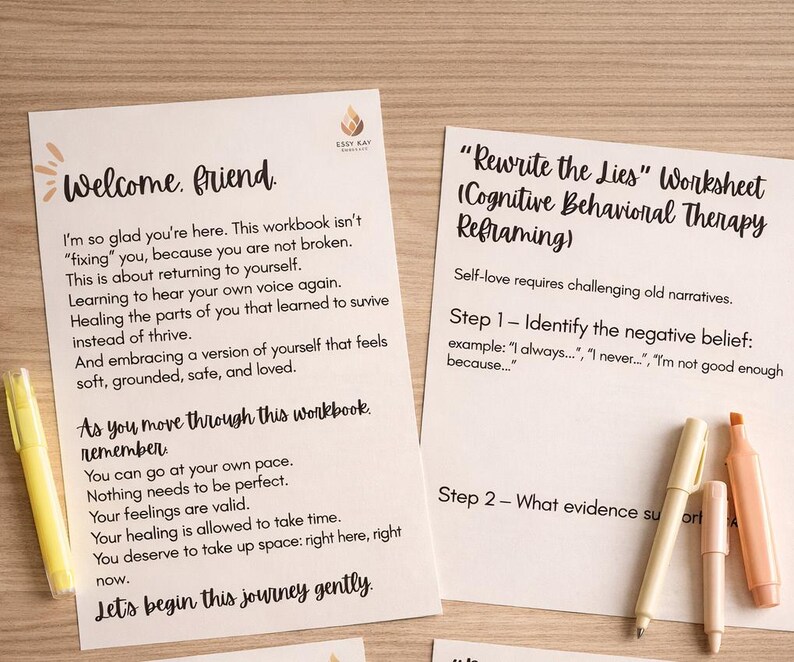 ESSY KAY
Welcome, friend.
I'm so glad you're here. This workbook isn't
"fixing" you, because you are not broken.
This is about returning to yourself.
Learning to hear your own voice again.
Healing the parts of you that learned to suvive
instead of thrive.
And embracing a version of yourself that feels
soft, grounded, safe, and loved.
As you move through this workbook,
remember:
You can go at your own pace.
Nothing needs to be perfect.
Your feelings are valid.
Your healing is allowed to take time.
You deserve to take up space: right here, right
now.
Let's begin this journey gently.
"Rewrite the Lies" Worksheet
(Cognitive Behavioral Therapy
Reframing)
Self-love requires challenging old narratives.
Step 1 – Identify the negative belief:
example: "I always...", "I never...", "I'm not good enough
because..."
Step 2 – What evidence